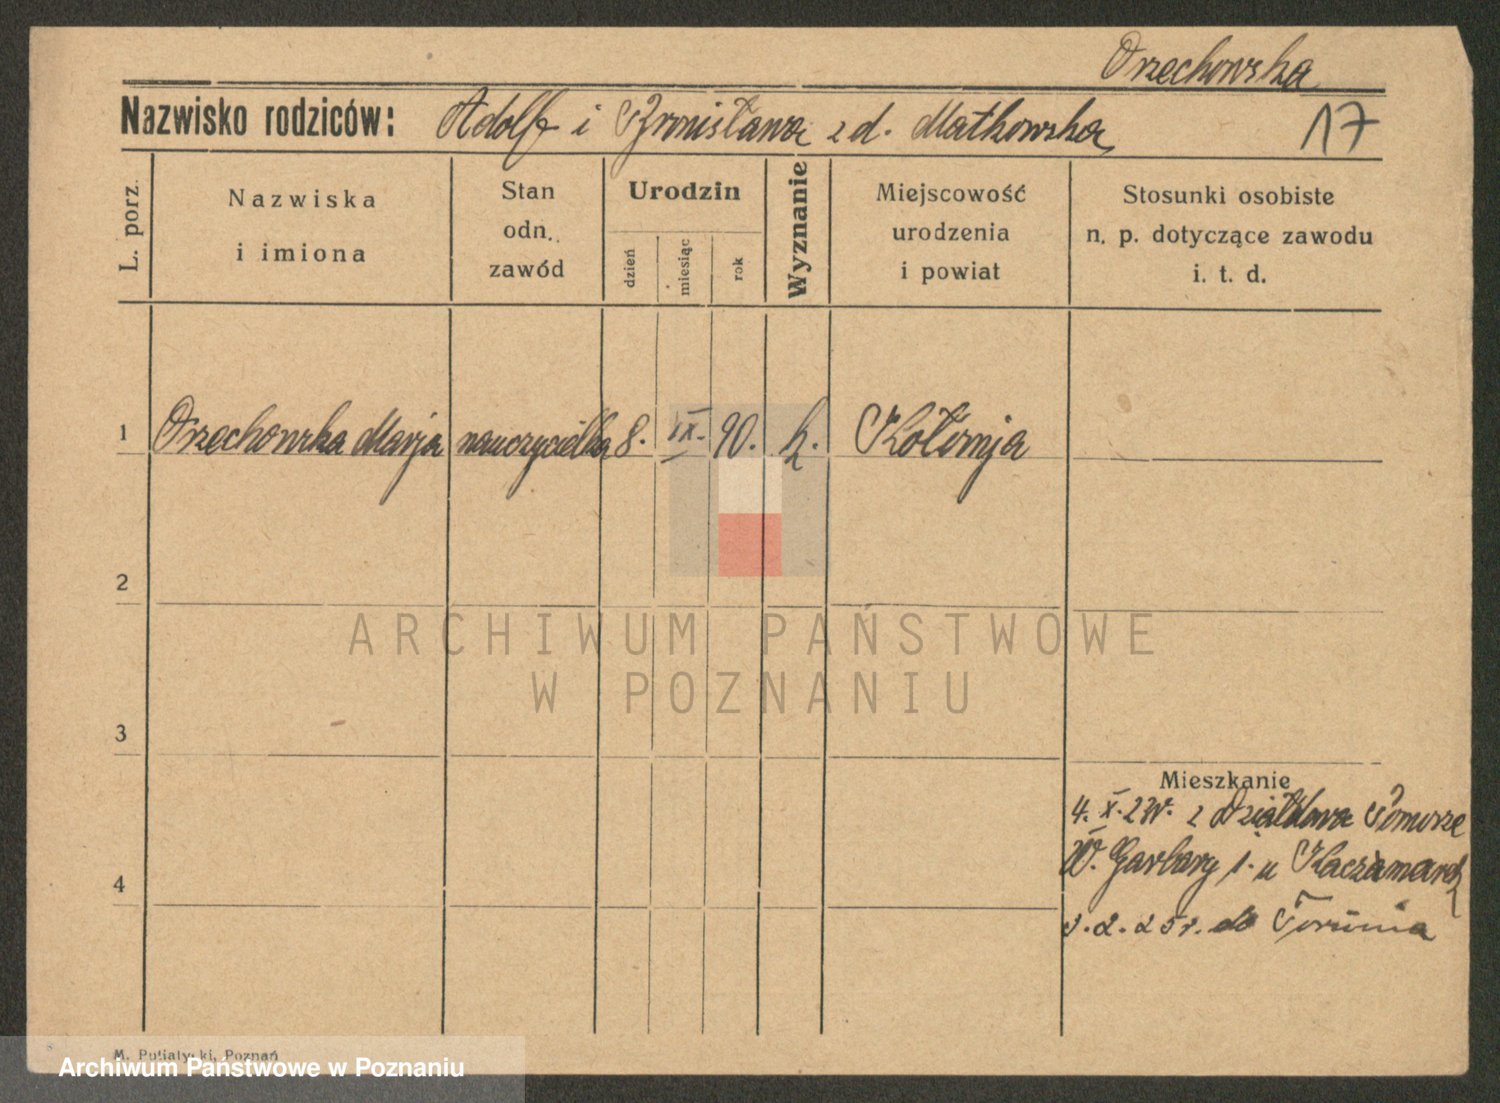 Orzechowska
Nazwisko rodziców: Adolf i Bronisława z d. Matkowska 17
L. porz.
Nazwiska
i imiona
Stan
odn.
zawód
Urodzin
dzień
miesiąc
rok
Wyznanie
Miejscowość
urodzenia
i powiat
Stosunki osobiste
n. p. dotyczące zawodu
i. t. d.
1 Orzechowska Marja nauczycielka 8. IX. 90. k. Kołomja
2
ARCHIWUM PAŃSTWOWE
W POZNANIU
3
Mieszkanie
4. X. z Działdowa Pomorze
W. Garbary 1. u
4
3. 2. 25 r. do Torunia
M. Putiatycki, Poznań
Archiwum Państwowe w Poznaniu